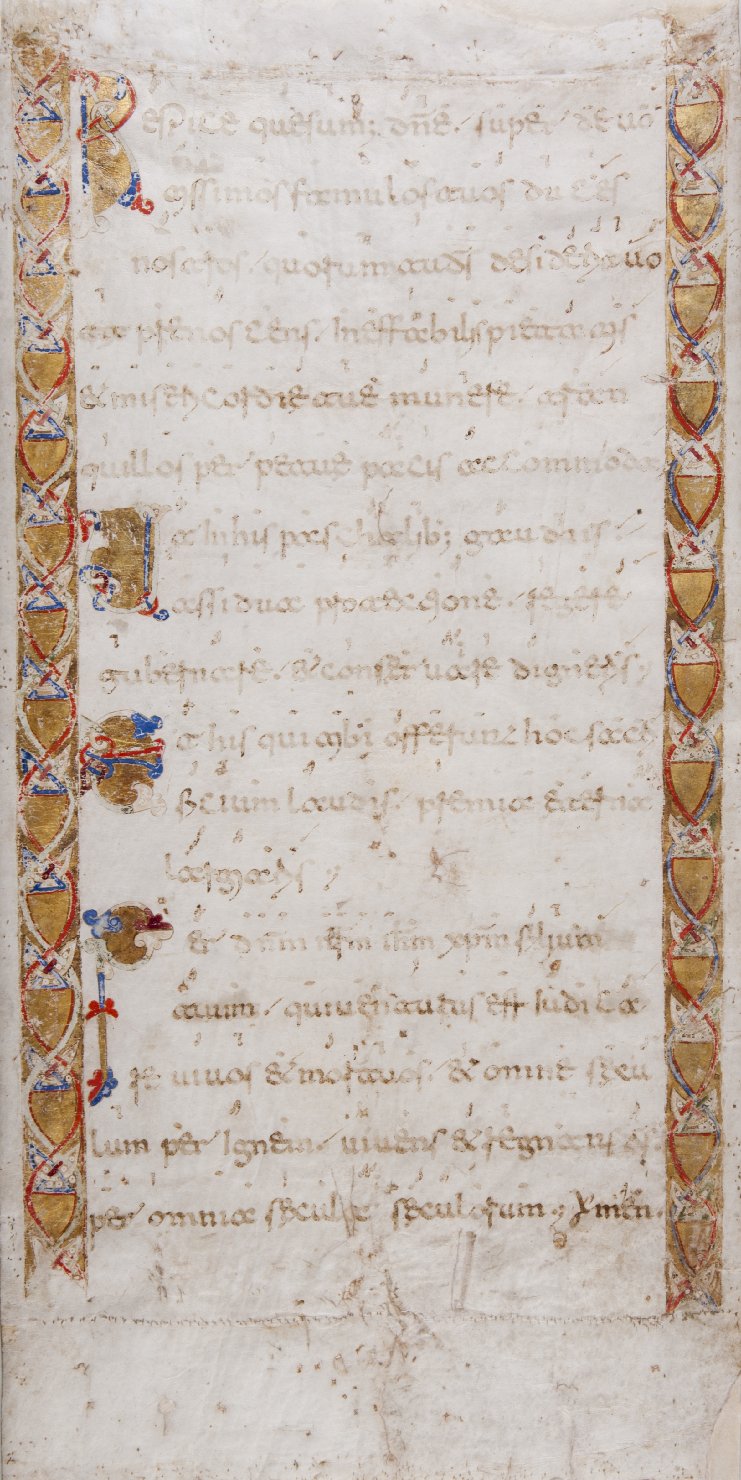 Respice quesum; dn̄e. super deuo
tissimos famulos tuos duces
nostros. quorum tu ds̄ desideriū uo
ta prenoscens. ineffabilis pietatis
& misericordie tue munere. tran
quillos per petue pacis accommoda
In his paschalib; gaudiis.
assidua protectione. regere
gubernare. & conseruare digneris;
Da his qui tibi offerunt hoc sacri
ficium laudis. premia eterna
largiaris;
Per dn̄m nr̄m ihm̄ xpm̄ filium
tuum. qui uenturus est iudica
re uiuos & mortuos. & omne secu
lum per ignem. uiuens & regnans
per omnia secula seculorum; Amen.